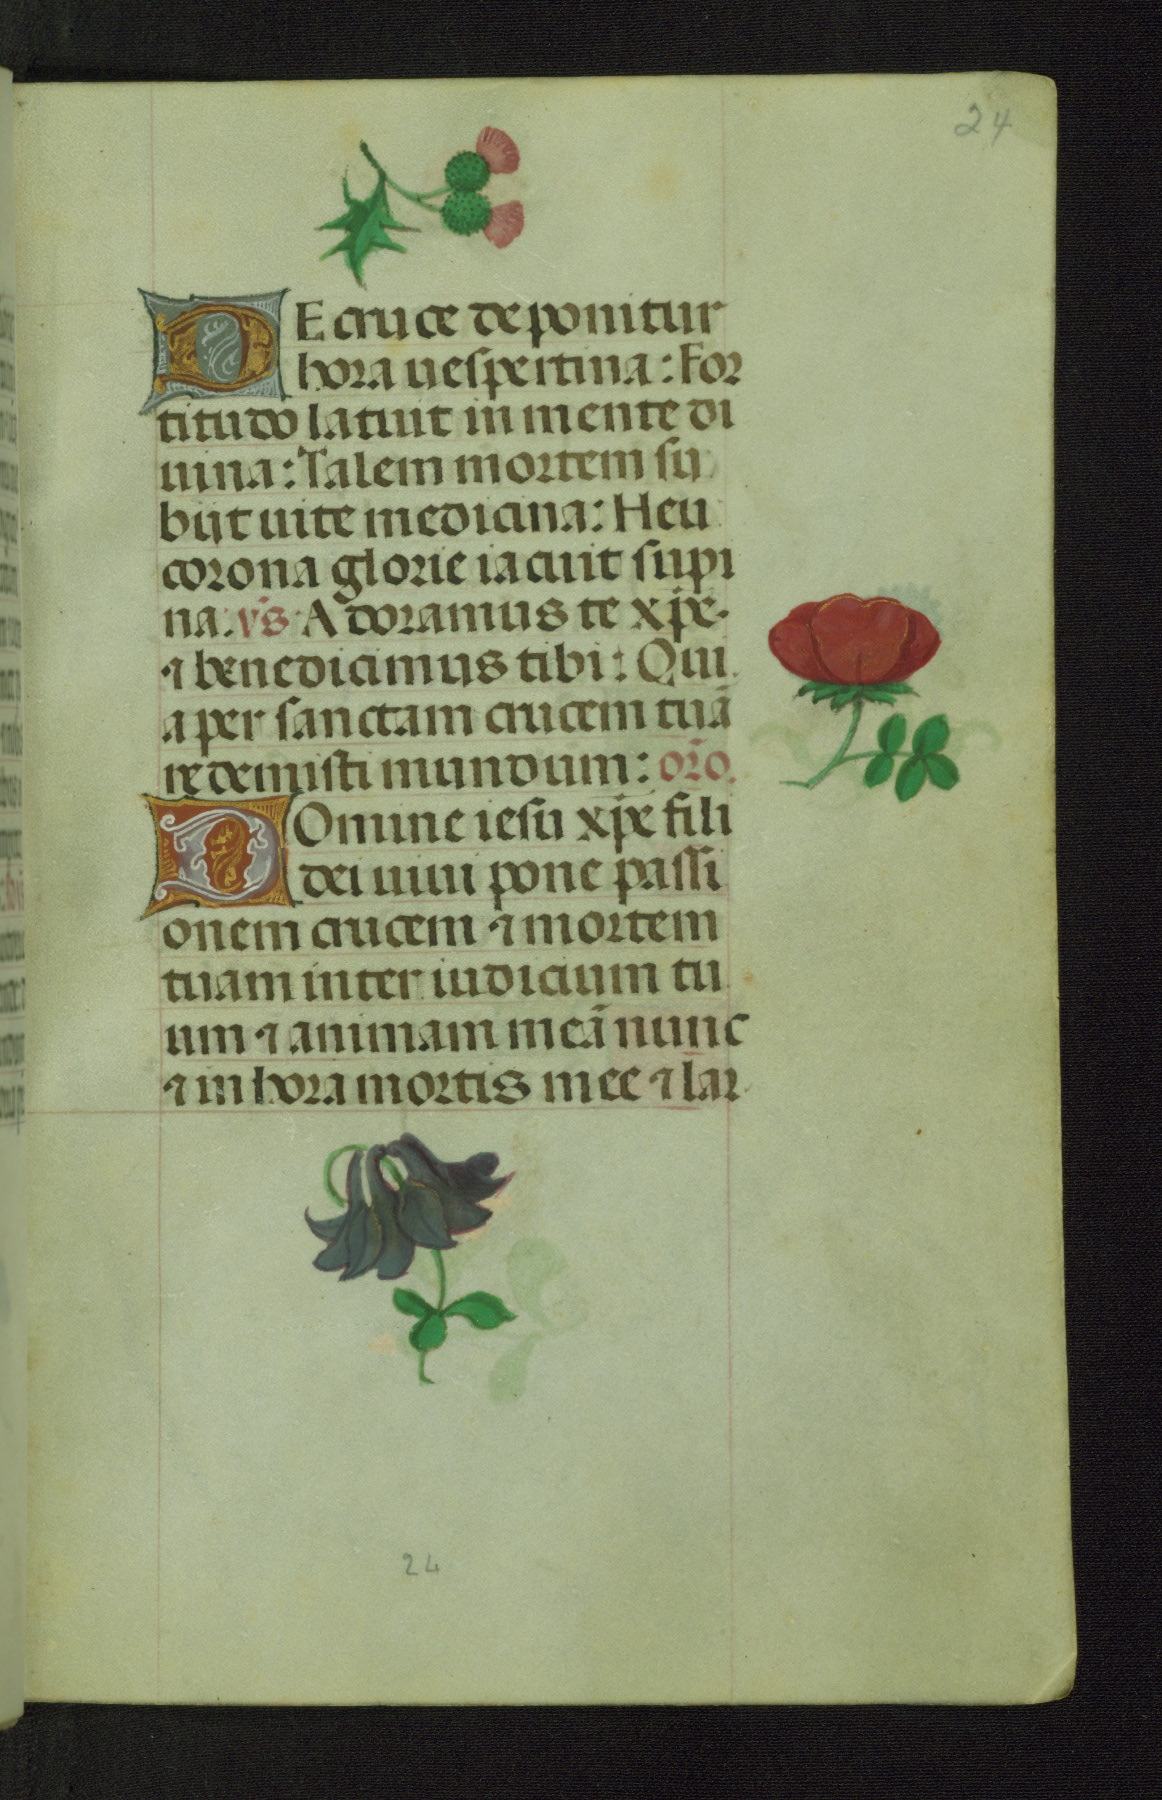 24
DE cruce deponitur
hora uespertina: For
titudo latuit in mente di
uina: Talem mortem su
biit uite medicina: Heu
corona glorie iacuit supi
na. vs̄ Adoramus te xp̄e.
⁊ benedicimus tibi: Qui
a per sanctam crucem tuā
redemisti mundum: or̄o.
DOmine iesu xp̄e fili
dei uiui pone passi
onem crucem ⁊ mortem
tuam inter iudicium tu
um ⁊ animam meā nunc
⁊ in hora mortis mee ⁊ lar
24